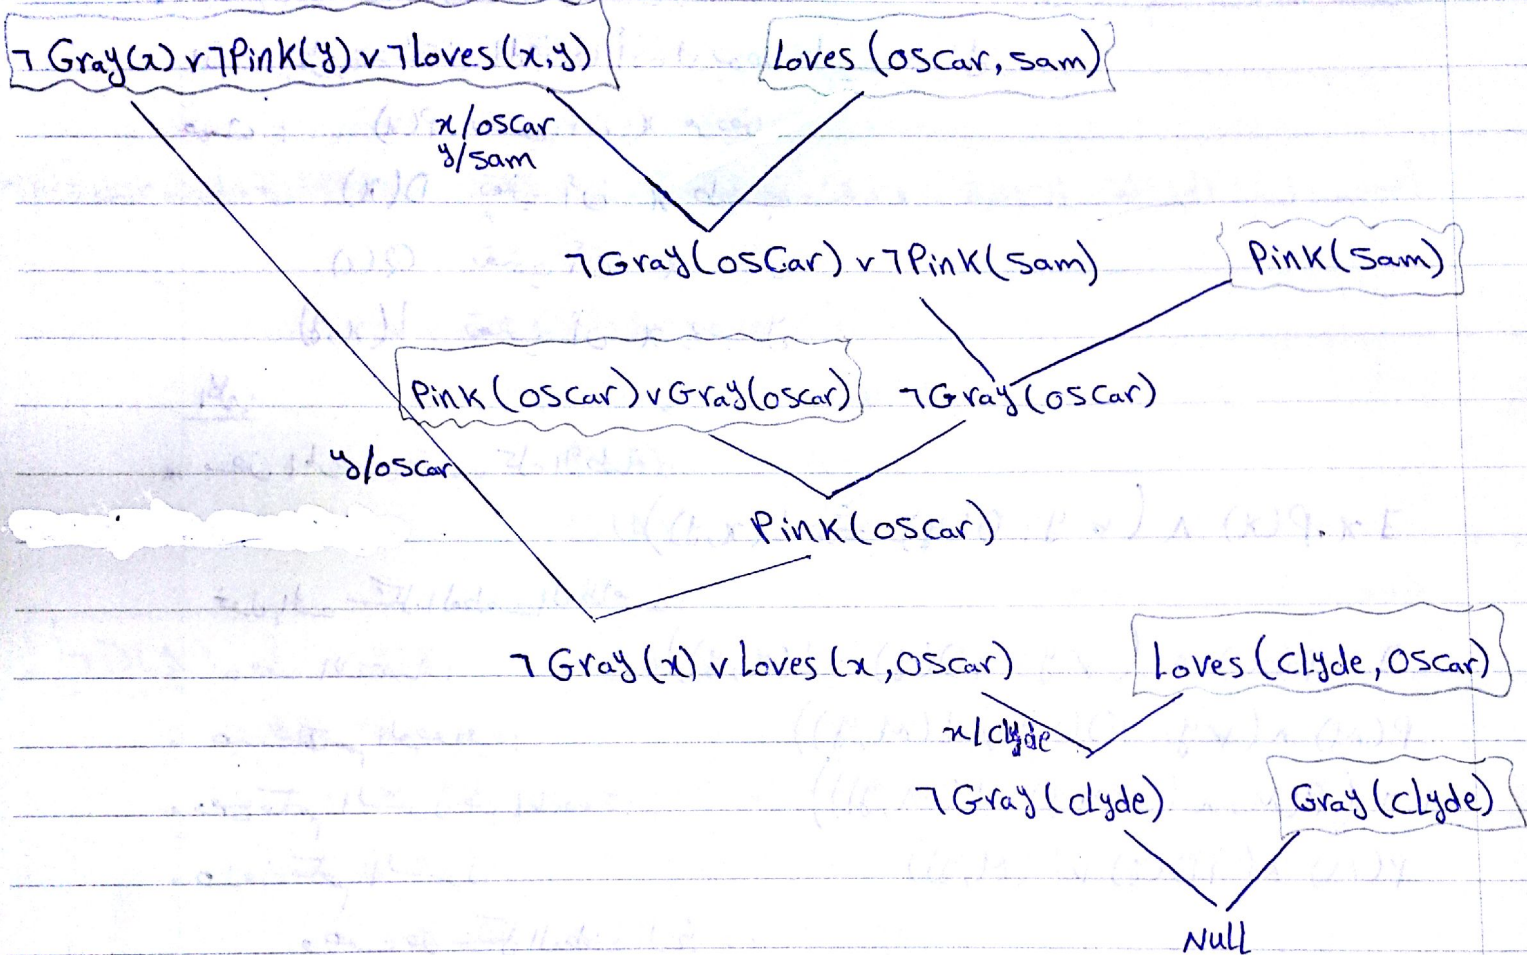 ¬Gray(x) ∨ ¬Pink(y) ∨ ¬loves(x,y)
Loves(oscar, sam)
x/oscar
y/sam
¬Gray(oscar) ∨ ¬Pink(sam)
Pink(sam)
Pink(oscar) ∨ Gray(oscar)
¬Gray(oscar)
y/oscar
Pink(oscar)
¬Gray(x) ∨ Loves(x, oscar)
Loves(clyde, oscar)
x/clyde
¬Gray(clyde)
Gray(clyde)
Null